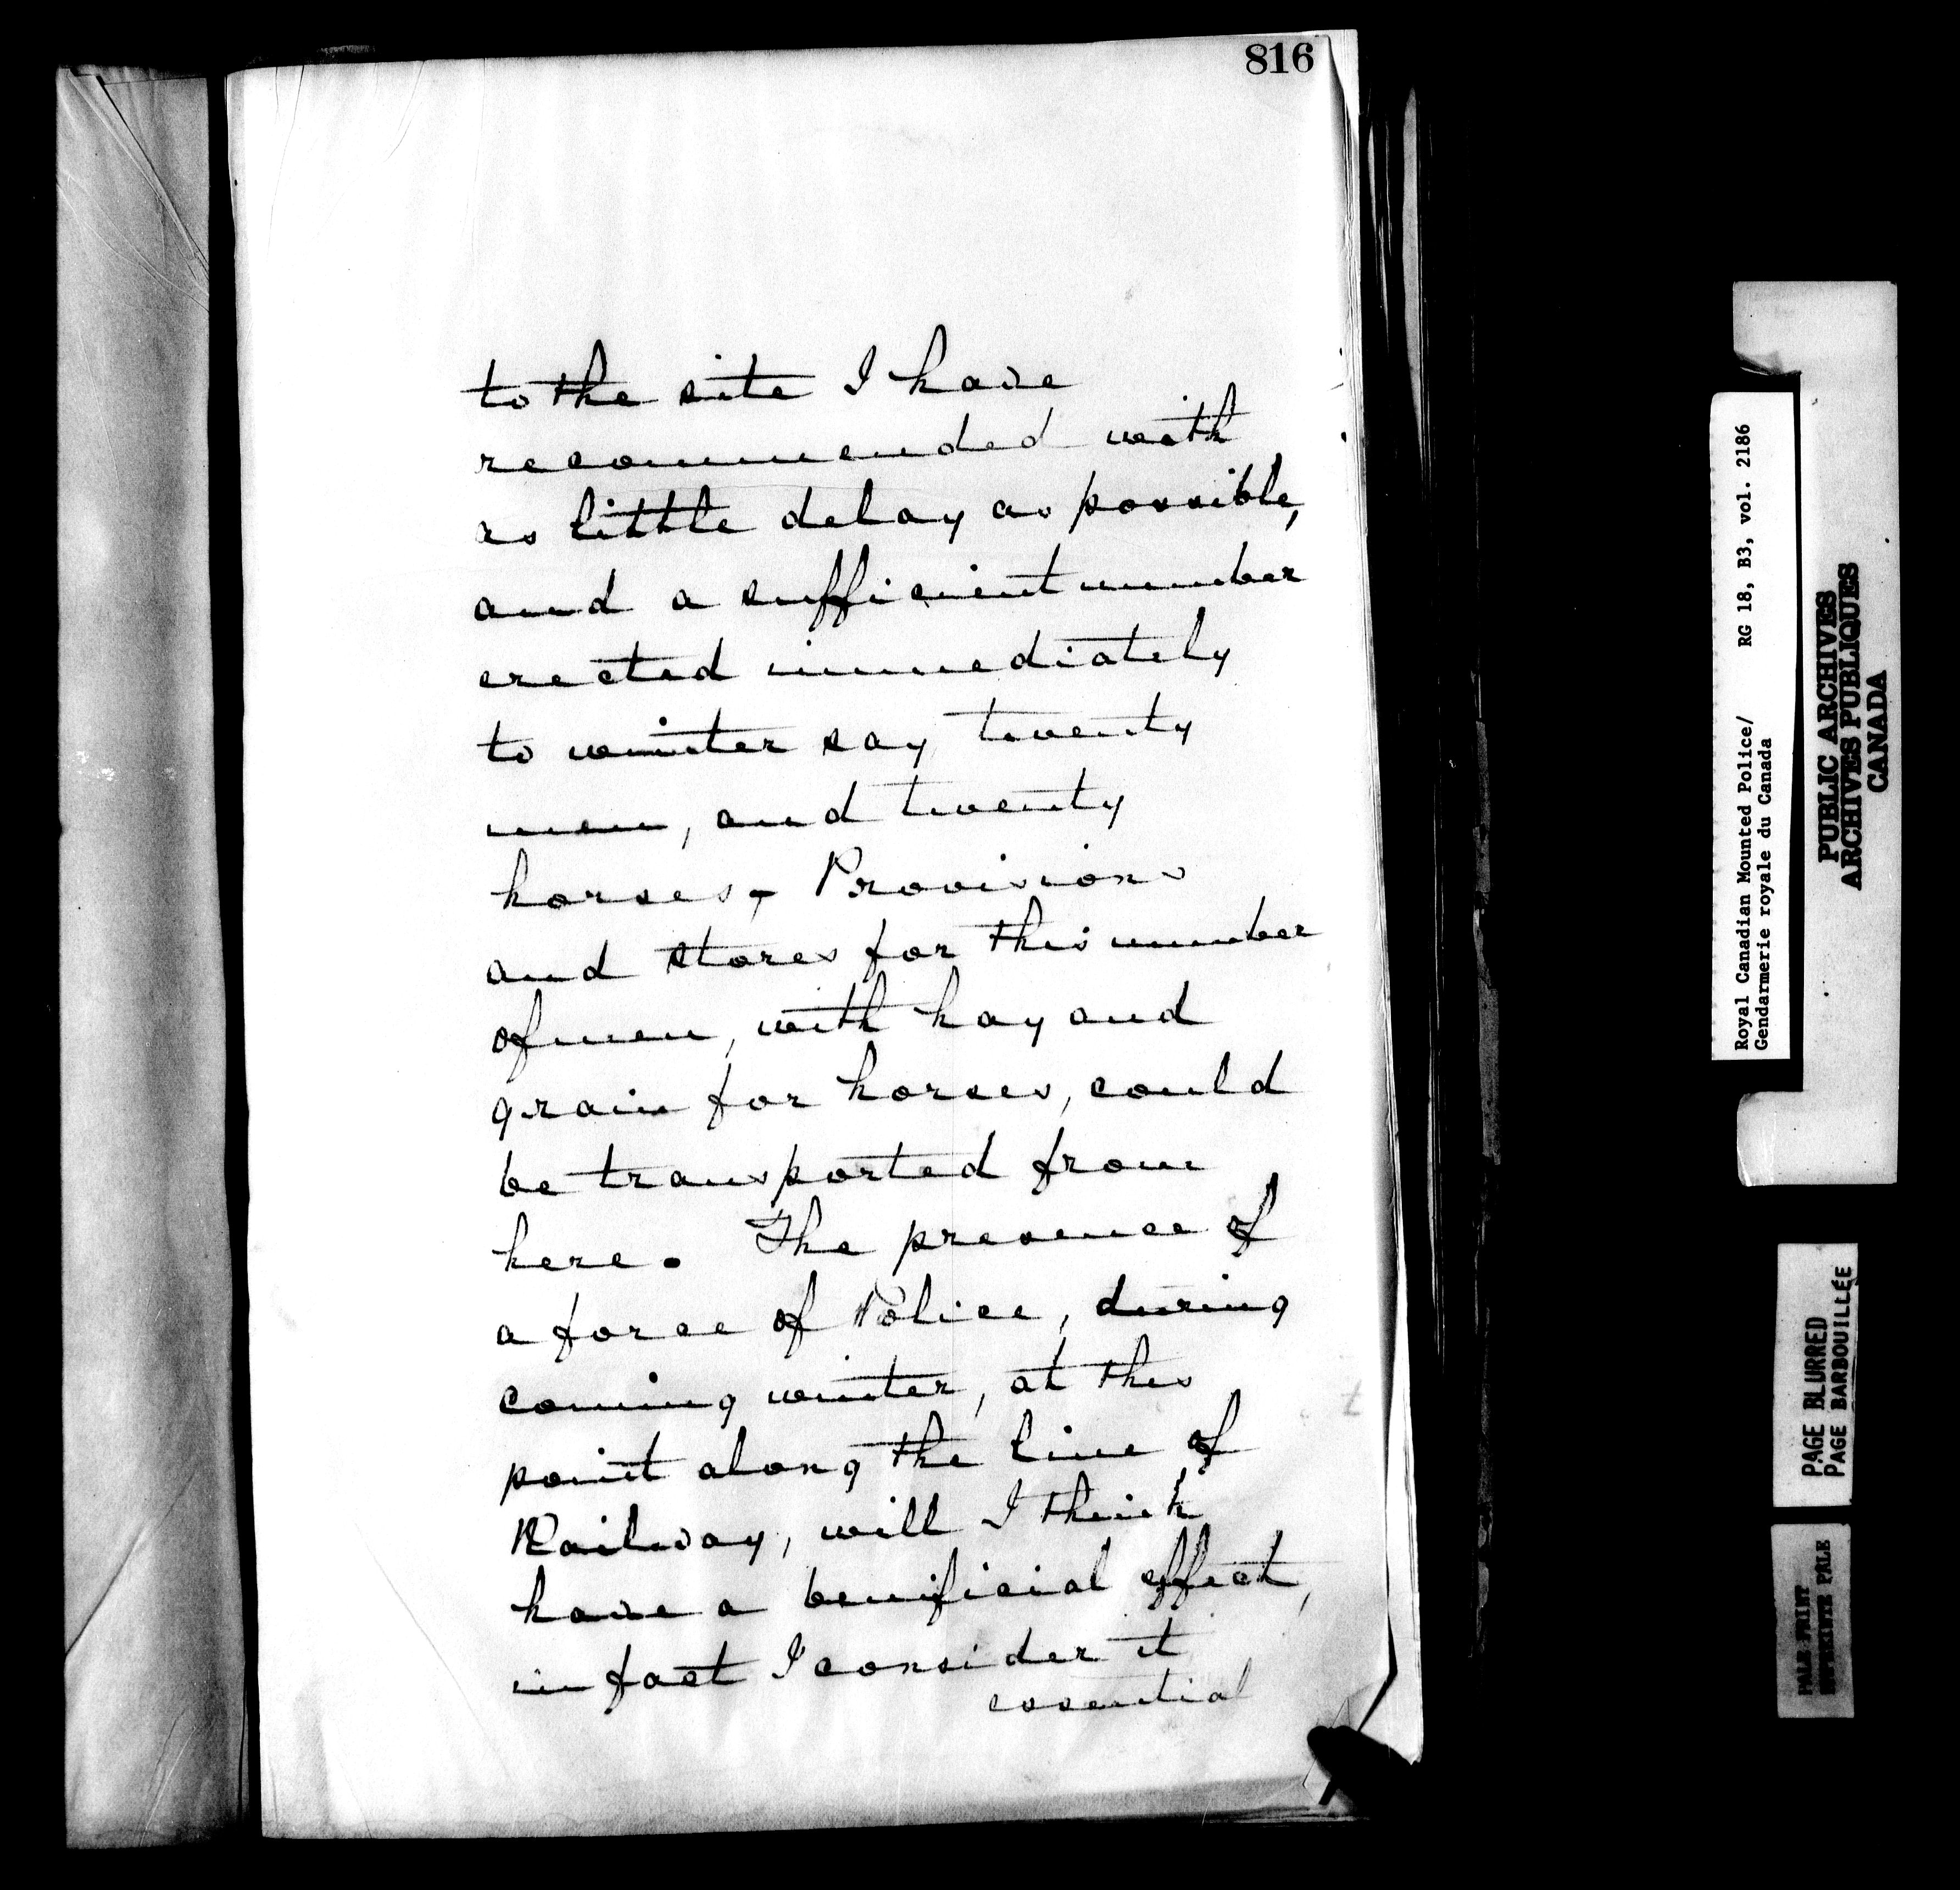 816
to the site I have
recommended with
as little delay as possible,
and a sufficient number
erected immediately
to winter say twenty
men, and twenty
horses, Provisions
and stores for this number
of men, with hay and
grain for horses, could
be transported from
here. The presence of
a force of Police, during
coming winter, at this
point along the line of
Railway, will I think
have a benificial effect,
in fact I consider it
essential
Royal Canadian Mounted Police/ RG 18, B3, vol. 2186
Gendarmerie royale du Canada
PUBLIC ARCHIVES
ARCHIVES PUBLIQUES
CANADA
PAGE BLURRED
PAGE BARBOUILLÉE
PALE PRINT
IMPRIMÉE PALE